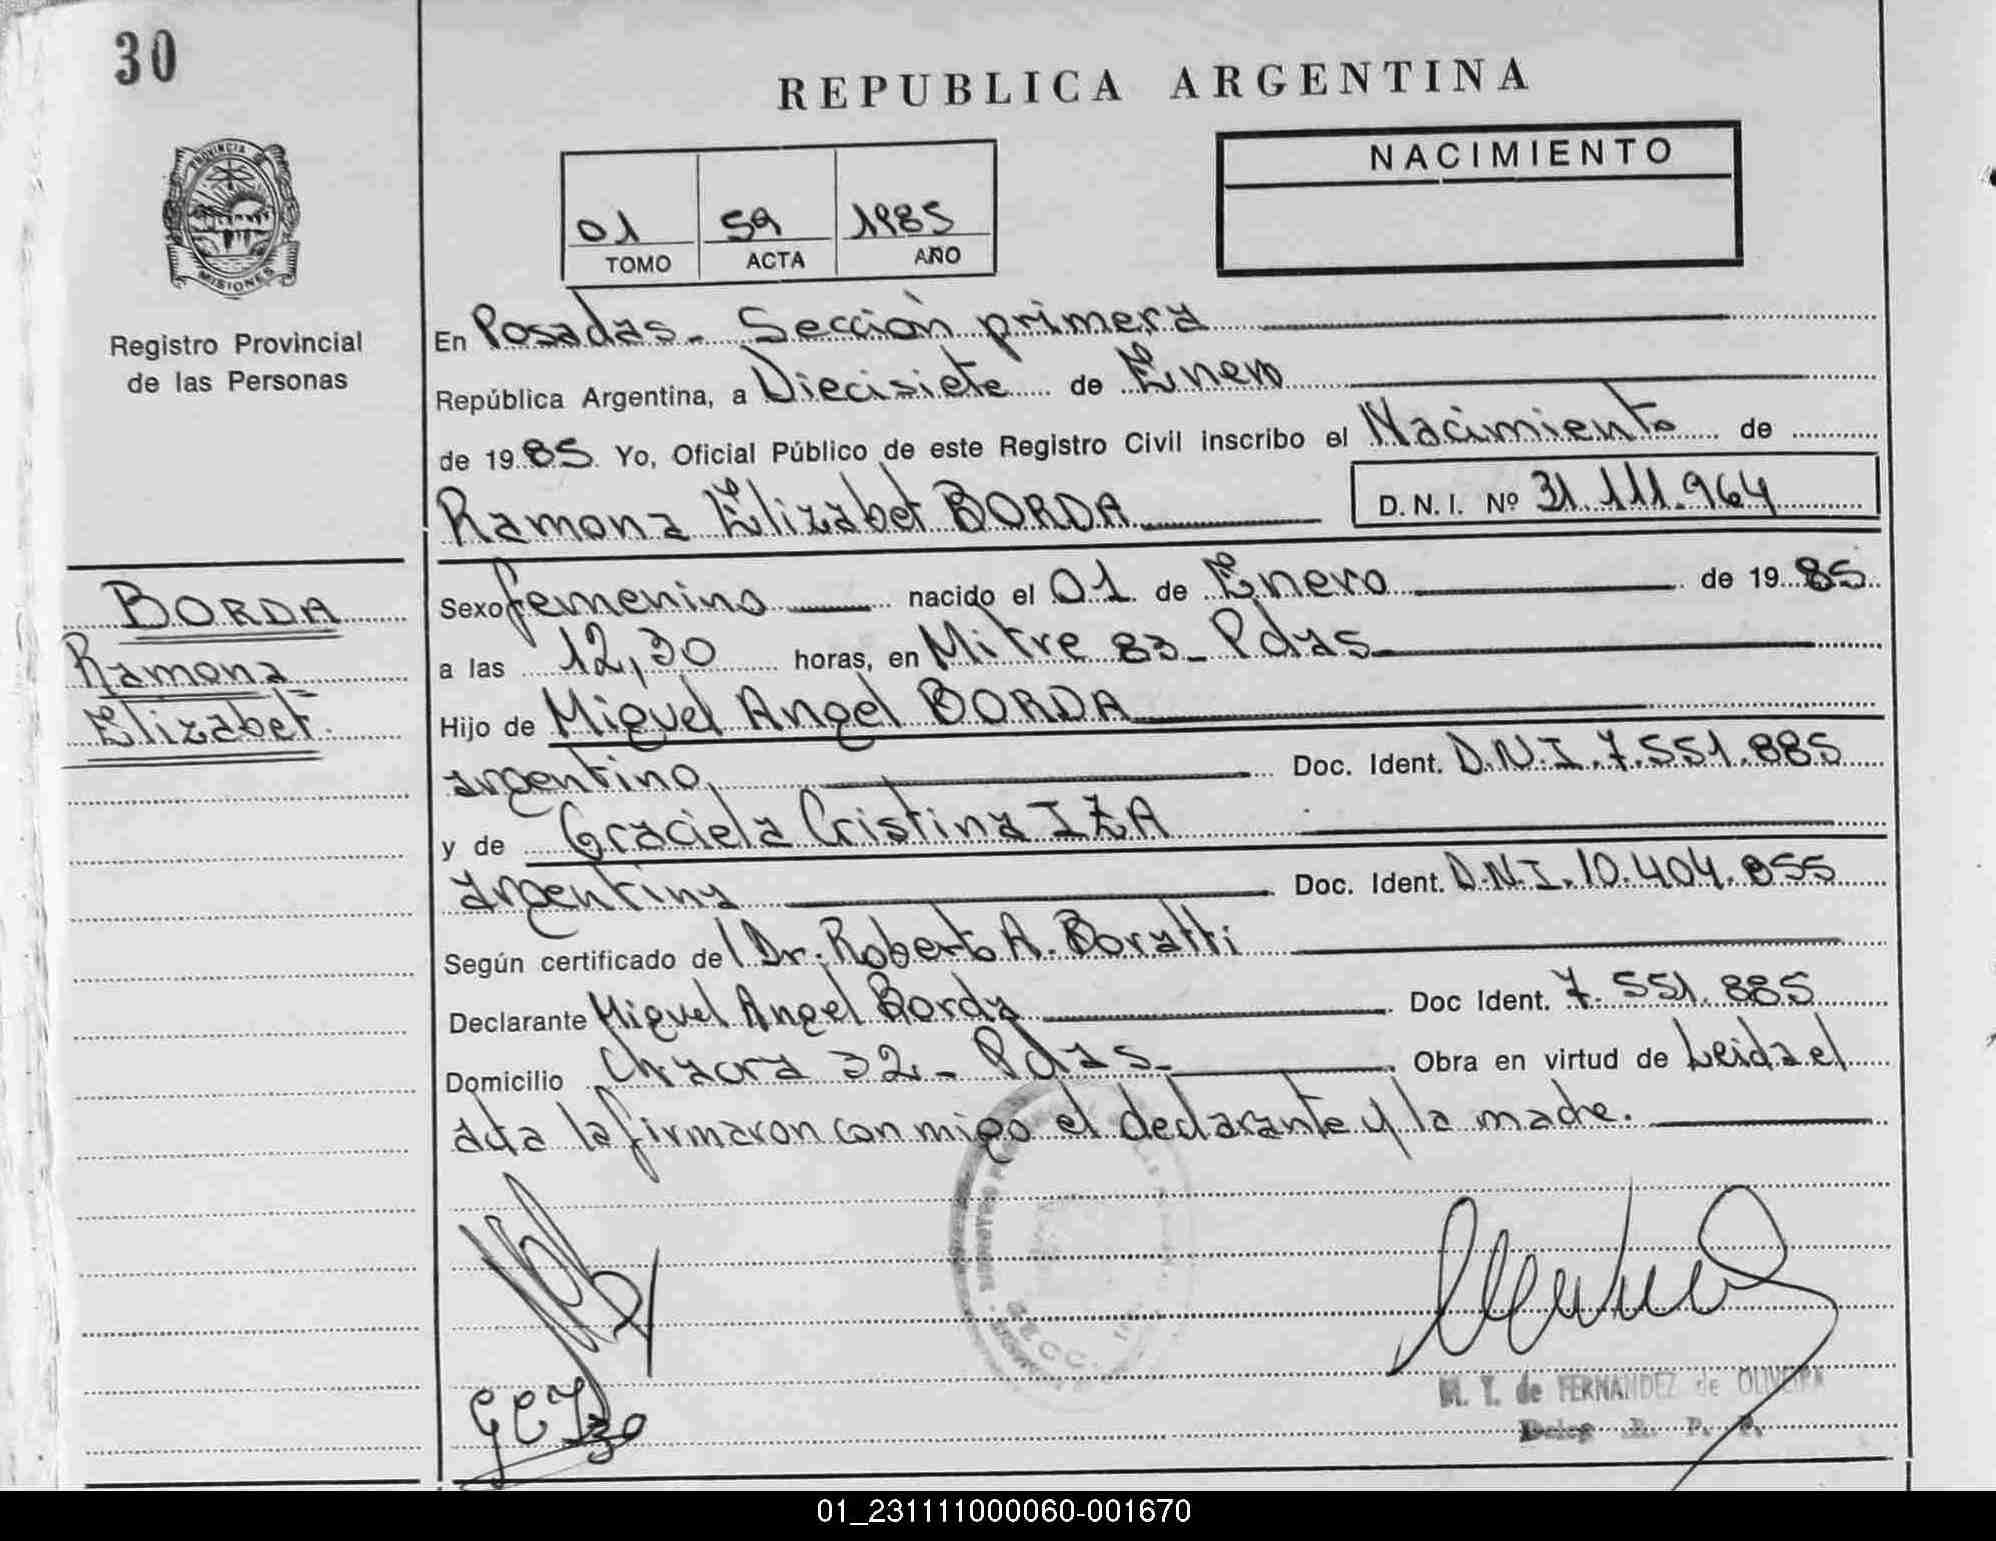 30
REPUBLICA ARGENTINA
PROVINCIA DE
MISIONES
Registro Provincial
de las Personas
NACIMIENTO
01 59 1985
TOMO ACTA AÑO
En Posadas - Sección primera
República Argentina, a Diecisiete de Enero
de 1985 Yo, Oficial Público de este Registro Civil inscribo el Nacimiento de
Ramona Elizabet BORDA D.N.I. Nº 31.111.964
BORDA
Ramona
Elizabet.
Sexo femenino nacido el 01 de Enero de 1985
a las 12,30 horas, en Mitre 83 - Pdas -
Hijo de Miguel Angel BORDA
argentino, Doc. Ident. D.N.I. 7.551.885
y de Graciela Cristina IZA
argentina Doc. Ident. D.N.I. 10.404.855
Según certificado del Dr. Roberto A. Boratti
Declarante Miguel Angel Borda Doc Ident. 7.551.885
Domicilio Chacra 32 - Pdas - Obra en virtud de Leida el
acta la firmaron conmigo el declarante y la madre.
SECC.
M. T. de FERNANDEZ de OLIVEIRA
Deleg. R. P. P.
01_231111000060-001670